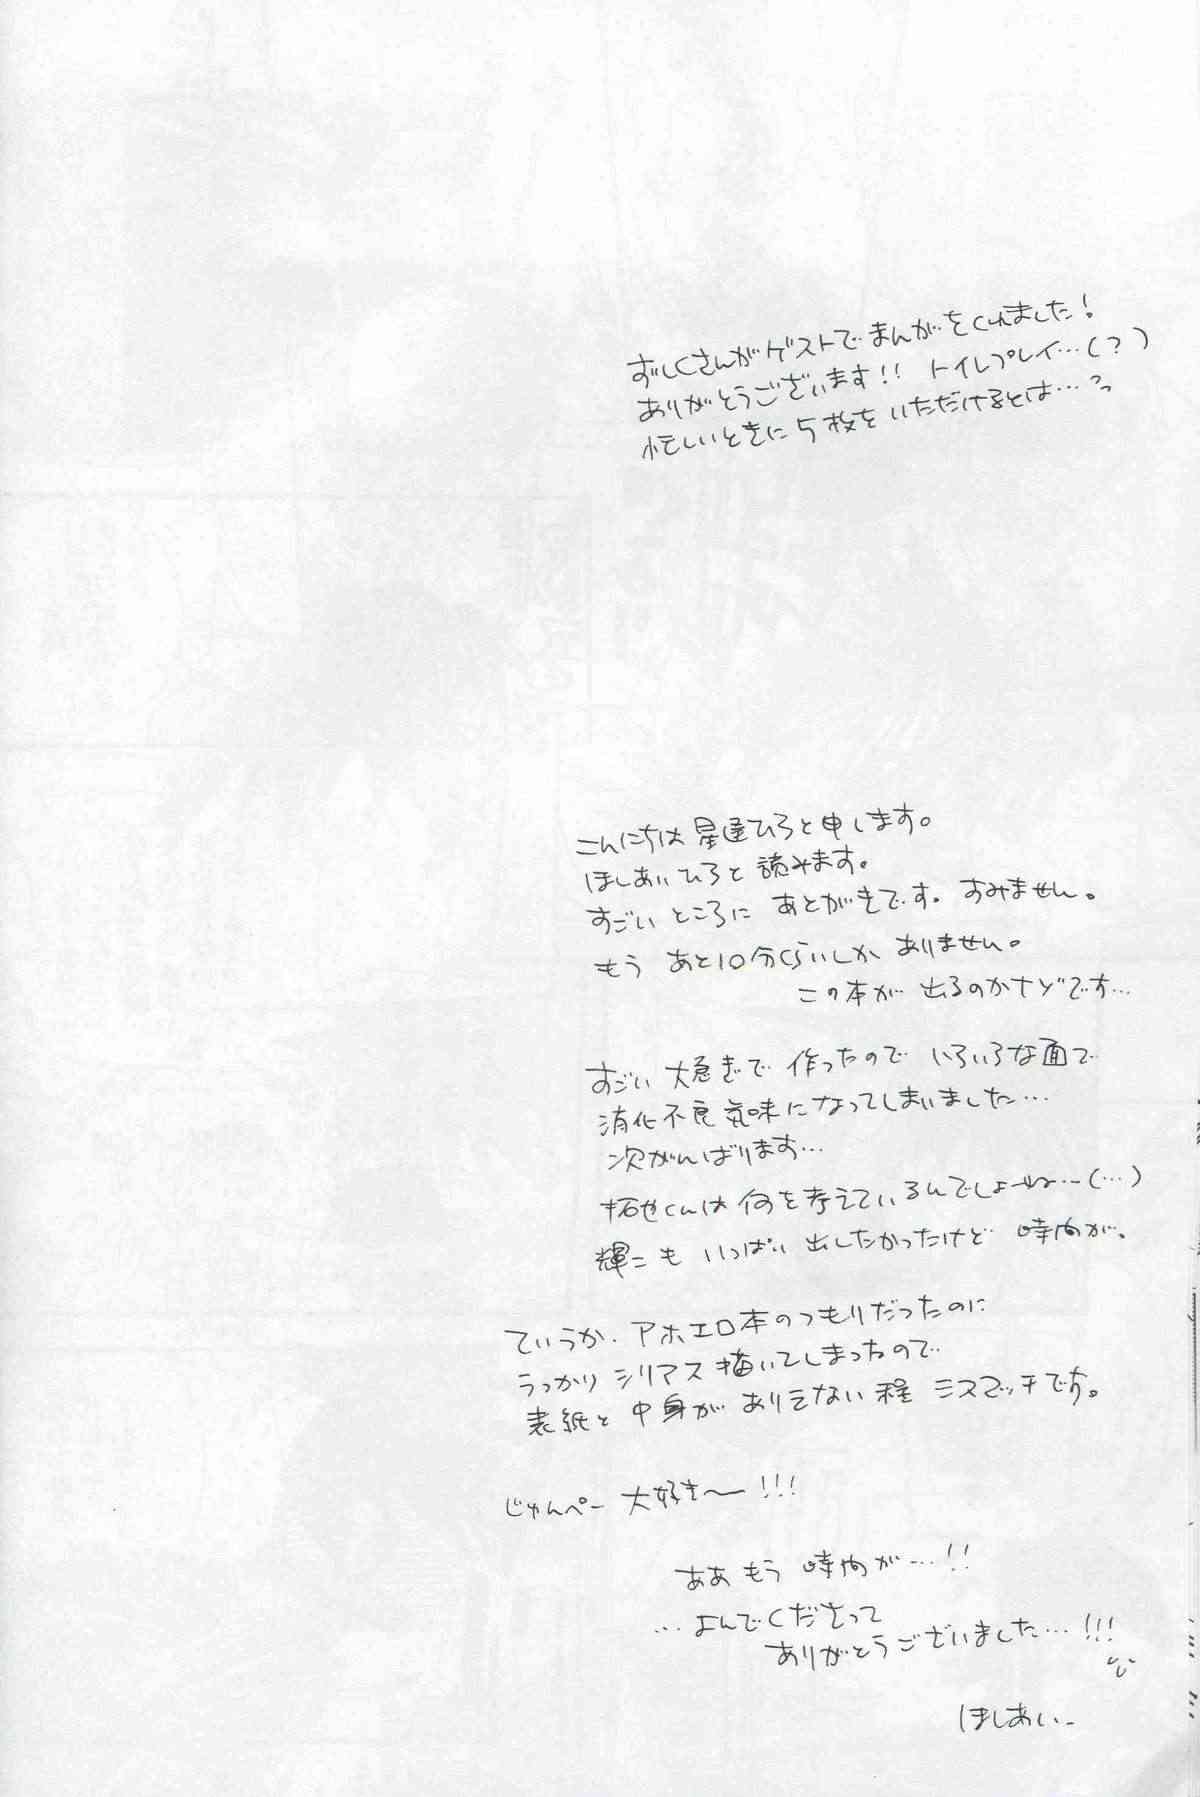 ずしくさんがゲストでまんがをくれました!
ありがとうございます!! トイレプレイ…(?)
忙しいときに5枚をいただけるとは…
こんにちは 星逢ひろと申します。
ほしあいひろと読みます。
すごいところに あとがきです。すみません。
もう あと10分くらいしか ありません。
この本が 出るのかナゾです…
すごい 大急ぎで 作ったので いろいろな面で
消化不良気味になってしまいました…
次がんばります…
拓也くんは 何を考えているんでしょーね…(…)
輝二も いっぱい 出したかったけど 時間が。
ていうか、アホエロ本のつもりだったのに
うっかり シリアス 描いてしまったので
表紙と 中身が ありえない程 ミスマッチです。
じゅんペー 大好き〜!!!
ああ もう 時間が…!!
…よんでくださって
ありがとうございました…!!!
ほしあい